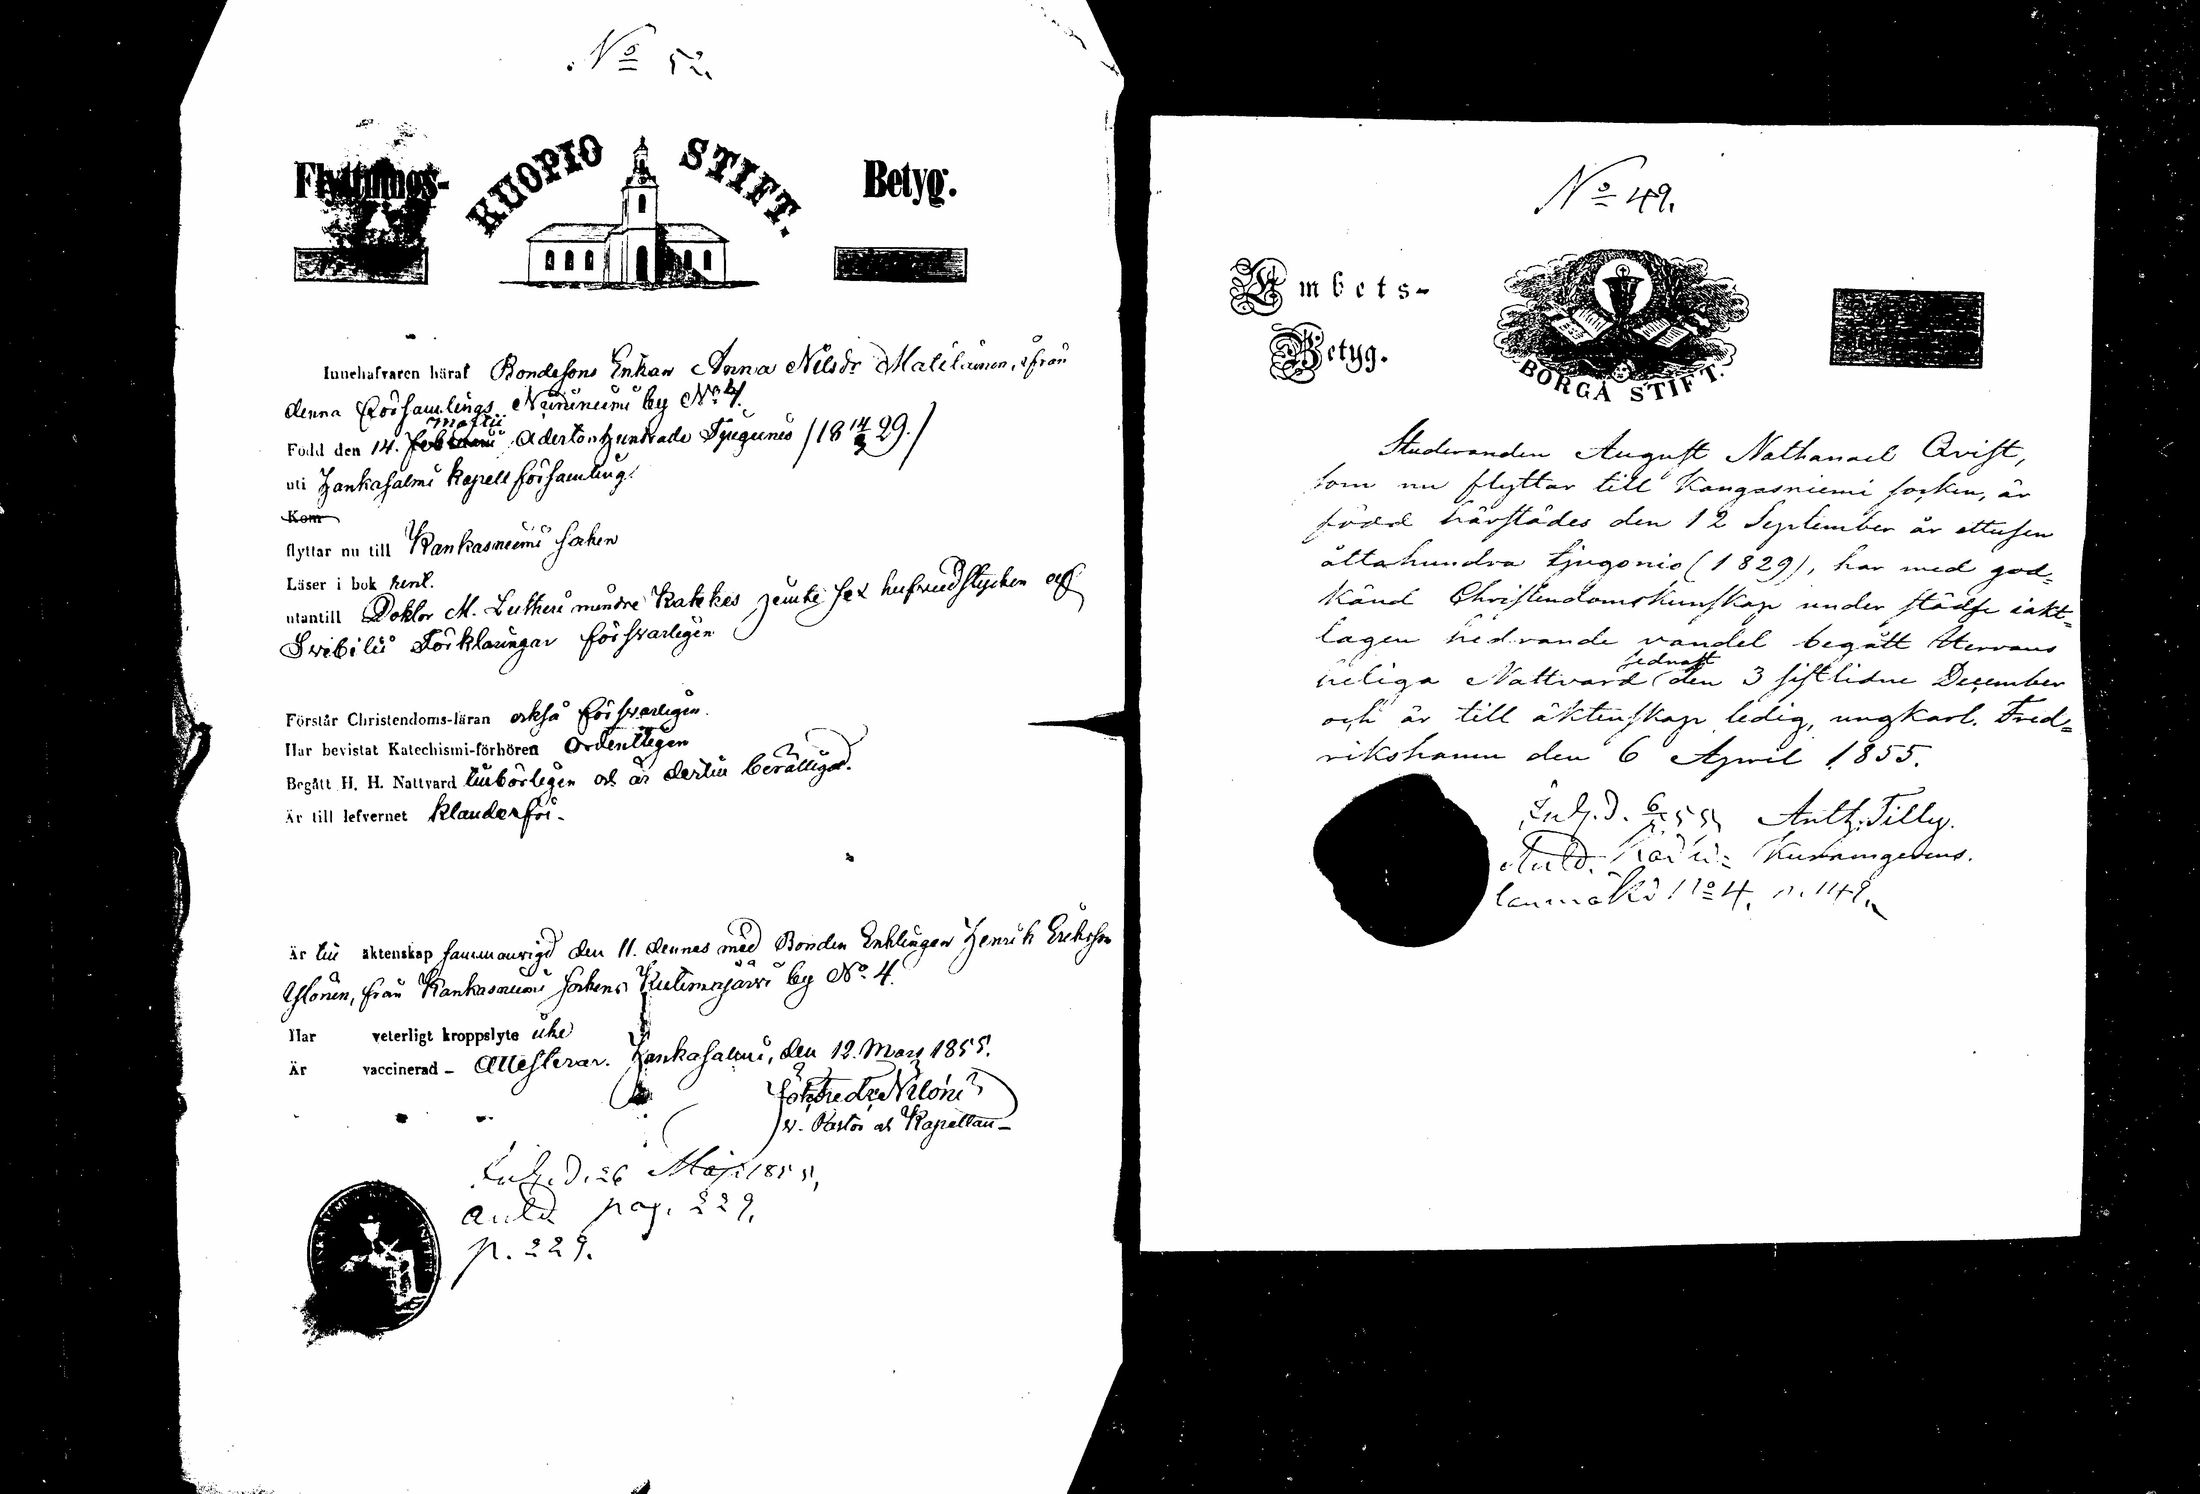 No 52.
Flyttnings-
KUOPIO STIFT.
Betyg.
Innehafvaren häraf Bondesons Enkan Anna Nilsdr Matilainen, ifrån
denna Församlings Niinimemi by No 4.
martii
Född den 14. februarii Adertonhundrade Tjugunio /18 14/3 29./
uti Hankasalmi kapell församling.
Kom
flyttar nu till Kankasniemi socken
Läser i bok rent.
utantill Doktor M. Lutheri mindre Katekes jemte sex hufvudstycken och
Svebilii Förklaringar försvarligen
Förstår Christendoms-läran också försvarligen.
Har bevistat Katechismi-förhören Ordentligen
Begått H. H. Nattvard tillbörligen och är dertill berättigad.
Är till lefvernet klanderfri.
Är till äktenskap sammanvigd den 11. dennes med Bonden Enklingen Henrik Eriksson
Ylönen, från Kankasniemi sockens Kutemajärvi by No. 4.
Har veterligt kroppslyte icke
Är vaccinerad – Attesterar. Hankasalmi, den 12. Mars 1855.
v. Pastor och Kapellan –
Inh. d. 26 Maj 1855,
pag. 229.
p. 229.
No 49.
Embets-
Betyg.
BORGÅ STIFT.
Studeranden August Nathanael Qvist,
som nu flyttar till Kangasniemi socken, är
född härstädes den 12 September år ettusen
åttahundra tjugonio (1829), har med god-
känd Christendomskunskap under städse iakt-
tagen hedrande vandel begått Herrans
sednast
heliga Nattvard den 3 sistlidne December
och är till äktenskap ledig, ungkarl. Fred-
rikshamn den 6 April 1855.
Inh. d. 6/5 55, Anth. Tilly.
Kyrkoherde
No 4. p. 149.